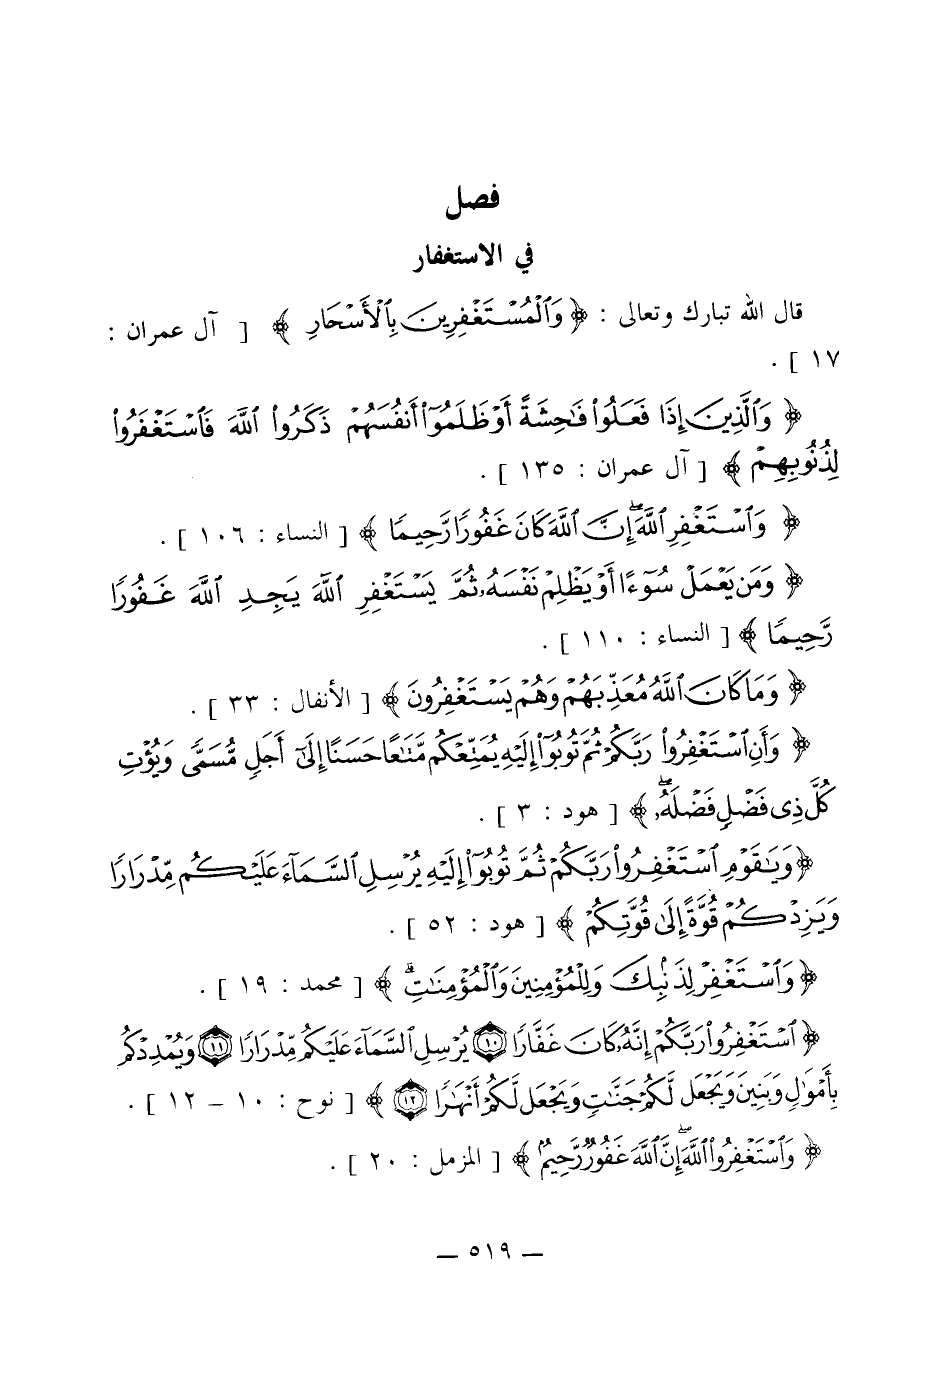 فصل
في الاستغفار
قال الله تبارك وتعالى : ﴿ وَٱلْمُسْتَغْفِرِينَ بِٱلْأَسْحَارِ ﴾ [ آل عمران :
١٧ ] .
﴿ وَٱلَّذِينَ إِذَا فَعَلُوا۟ فَٰحِشَةً أَوْ ظَلَمُوٓا۟ أَنفُسَهُمْ ذَكَرُوا۟ ٱللَّهَ فَٱسْتَغْفَرُوا۟
لِذُنُوبِهِمْ ﴾ [ آل عمران : ١٣٥ ] .
﴿ وَٱسْتَغْفِرِ ٱللَّهَ ۖ إِنَّ ٱللَّهَ كَانَ غَفُورًا رَّحِيمًا ﴾ [ النساء : ١٠٦ ] .
﴿ وَمَن يَعْمَلْ سُوٓءًا أَوْ يَظْلِمْ نَفْسَهُۥ ثُمَّ يَسْتَغْفِرِ ٱللَّهَ يَجِدِ ٱللَّهَ غَفُورًا
رَّحِيمًا ﴾ [ النساء : ١١٠ ] .
﴿ وَمَا كَانَ ٱللَّهُ مُعَذِّبَهُمْ وَهُمْ يَسْتَغْفِرُونَ ﴾ [ الأنفال : ٣٣ ] .
﴿ وَأَنِ ٱسْتَغْفِرُوا۟ رَبَّكُمْ ثُمَّ تُوبُوٓا۟ إِلَيْهِ يُمَتِّعْكُم مَّتَٰعًا حَسَنًا إِلَىٰٓ أَجَلٍ مُّسَمًّى وَيُؤْتِ
كُلَّ ذِى فَضْلٍ فَضْلَهُۥ ۖ ﴾ [ هود : ٣ ] .
﴿ وَيَٰقَوْمِ ٱسْتَغْفِرُوا۟ رَبَّكُمْ ثُمَّ تُوبُوٓا۟ إِلَيْهِ يُرْسِلِ ٱلسَّمَآءَ عَلَيْكُم مِّدْرَارًا
وَيَزِدْكُمْ قُوَّةً إِلَىٰ قُوَّتِكُمْ ﴾ [ هود : ٥٢ ] .
﴿ وَٱسْتَغْفِرْ لِذَنۢبِكَ وَلِلْمُؤْمِنِينَ وَٱلْمُؤْمِنَٰتِ ۗ ﴾ [ محمد : ١٩ ] .
﴿ ٱسْتَغْفِرُوا۟ رَبَّكُمْ إِنَّهُۥ كَانَ غَفَّارًا ١٠ يُرْسِلِ ٱلسَّمَآءَ عَلَيْكُم مِّدْرَارًا ١١ وَيُمْدِدْكُم
بِأَمْوَٰلٍ وَبَنِينَ وَيَجْعَل لَّكُمْ جَنَّٰتٍ وَيَجْعَل لَّكُمْ أَنْهَٰرًا ١٢ ﴾ [ نوح : ١٠ – ١٢ ] .
﴿ وَٱسْتَغْفِرُوا۟ ٱللَّهَ ۖ إِنَّ ٱللَّهَ غَفُورٌ رَّحِيمٌۢ ﴾ [ المزمل : ٢٠ ] .
— ٥١٩ —